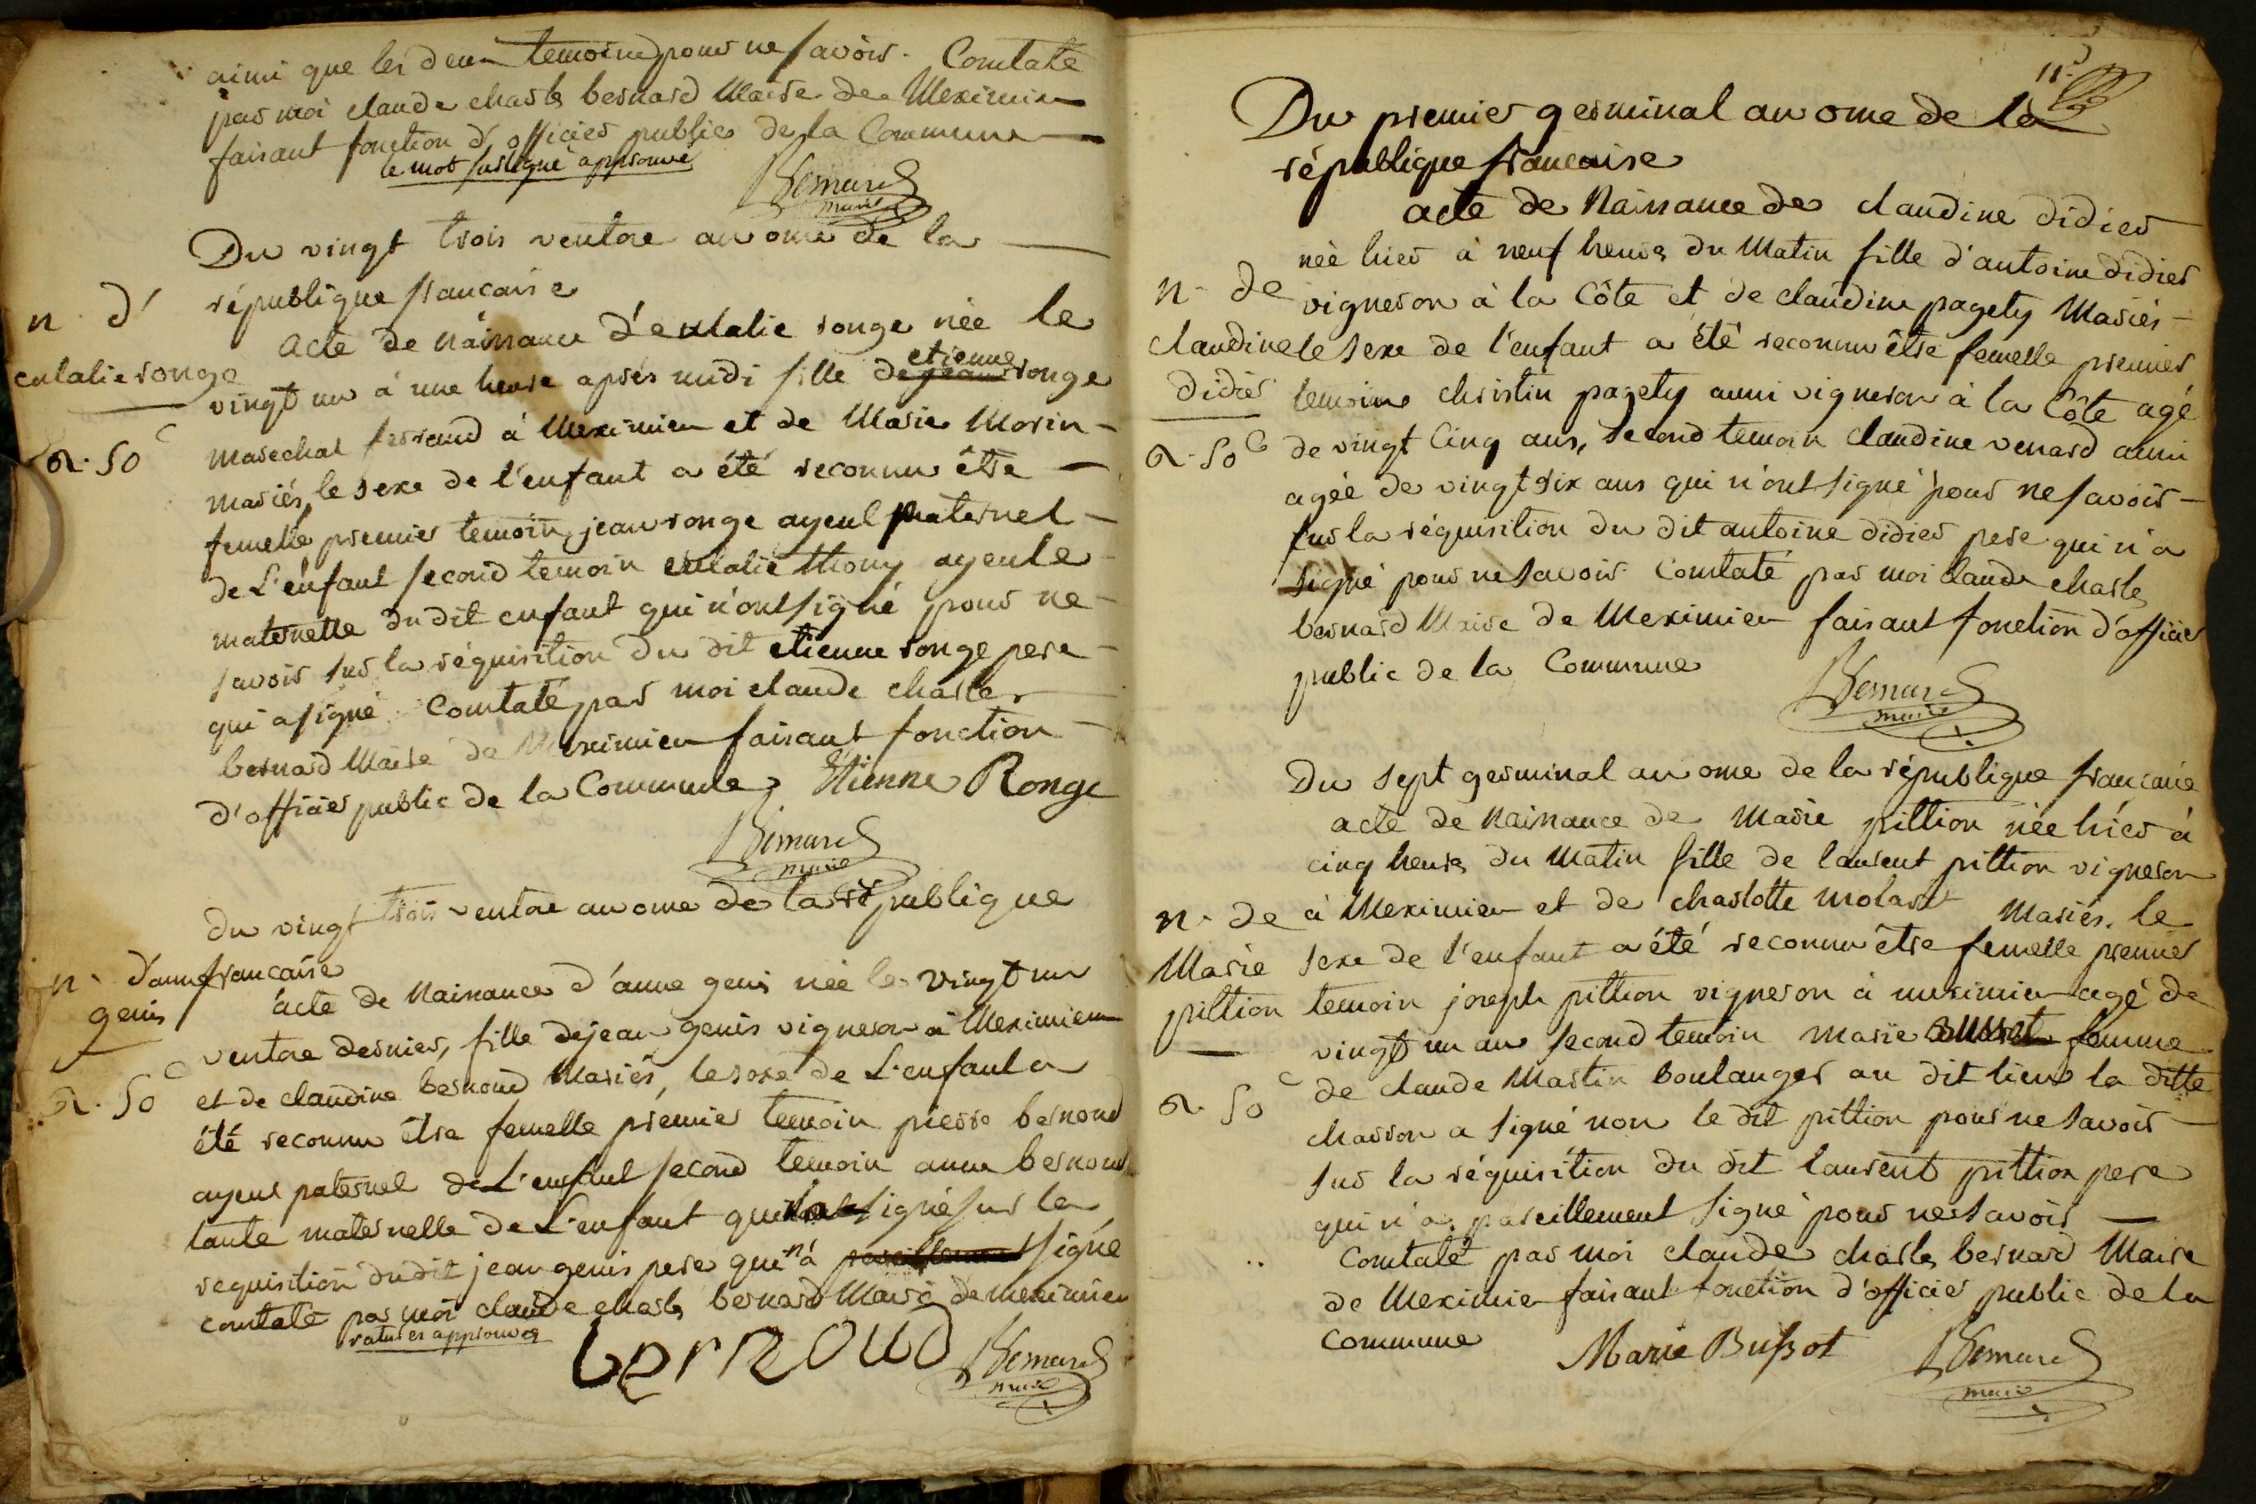 ainsi que les deux temoins pour ne savoir. Constaté
par moi claude charle bernard Maire de Meximieu
faisant fonction d'officier public de la Commune
le mot surligné approuvé
Bernard
maire
Du vingt trois ventose an onze de la
république francaise
n. d'
eulalie ronge
2. 50 c
acte de naissance d'eulalie ronge née le
vingt un à une heure après midi fille de jean etienne ronge
marechal ferrand à Meximieu et de Marie Morin
mariés, le sexe de l'enfant a été reconnu être
femelle premier temoin jean ronge ayeul paternel
de L'enfant second temoin eulalie thony ayeule
maternelle du dit enfant qui n'ont signé pour ne
savoir sur la réquisition du dit etienne ronge pere
qui a signé. Constaté par moi claude charle
bernard Maire de Meximieu faisant fonction
d'officier public de la Commune Etienne Ronge
Bernard
maire
du vingt trois ventose an onze de la république
francaise
n. d'anne
genis
2. 50 c
acte de Naissance d'anne genis née le vingt un
ventose dernier, fille de jean genis vigneron à Meximieu
et de claudine bernoud Mariés, le sexe de L'enfant a
été reconnu être femelle prémier temoin pierre bernoud
ayeul paternel de L'enfant second temoin anne bernoud
tante maternelle de L'enfant qui signé sur la
requisition du dit jean genis pere qui n'a pareillement signé
constaté par moi claude charle bernard Maire de meximieu
ratures approuvés
bernoud
Bernard
maire
11.
Du premier germinal an onze de la
république francaise
acte de Naissance de claudine didier
née hier à neuf heures du Matin fille d'antoine didier
n. de
claudine
didier
2. 50 c
vigneron à la Côte et de claudine pagety Mariés
le sexe de l'enfant a été reconnu être femelle premier
temoin christin pagety aussi vigneron à la Côte agé
de vingt Cinq ans, second temoin claudine venard aussi
agée de vingt six ans qui n'ont signé pour ne savoir
sur la réquisition du dit antoine didier pere qui n'a
signé pour ne savoir Constaté par moi claude charle
bernard Maire de Meximieu faisant fonction d'officier
public de la Commune
Bernard
maire
Du sept germinal an onze de la république francaise
acte de Naissance de Marie pittion née hier à
cinq heures du Matin fille de laurent pittion vigneron
n. de
Marie
pittion
2. 50 c
à Meximieu et de charlotte molard Mariés. le
sexe de l'enfant a été reconnu être femelle premier
temoin joseph pittion vigneron à meximieu agé de
vingt un an second temoin marie Bussot femme
de claude Martin boulanger au dit lieu la ditte
charron a signé non le dit pittion pour ne savoir
sur la réquisition du dit laurent pittion pere
qui n'a pareillement signé pour ne savoir
Constaté par moi claude charle bernard Maire
de Meximieu faisant fonction d'officier public de la
Commune
Marie Bussot
Bernard
maire